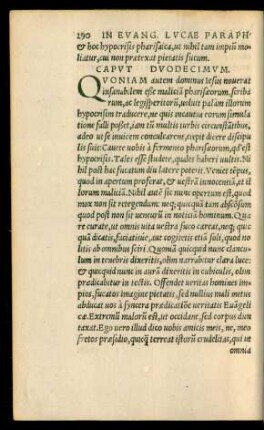 290 IN EVANG. LVCAE PARAPH
& hoc hypocrisis pharisaica, ut nihil tam impiũ mo-
liatur, cui non prætexat pietatis fucum.
CAPVT DVODECIMVM.
QVONIAM autem dominus Iesus nouerat
insanabilem esse maliciã pharisæorum, scriba
rum, ac legisperitorũ, uoluit palàm illorum
hypocrisim traducere, ne quis incautus eorum simula
tione falli posset, tam in multis turbis circumstãtibus,
adeo ut se inuicem conculcarent, cœpit dicere discipu
lis suis: Cauete uobis à fermento pharisæorum, qd' est
hypocrisis. Tales esse studete, quales haberi uultis. Ni
hil post hac fucatum diu latere poterit. Veniet tẽpus,
quod in apertum proferat, & uestrã innocentiã, et il
lorum maliciã. Nihil aut' sic nunc opertum est, quod
mox non sit retegendum: neq; quicquã tam abscõsum
quod post non sit uenturũ in noticiã hominum. Qua
re curate, ut omnis uita uestra fuco careat, neq; quic
quã dicatis, faciatisue, aut cogitetis etiã solis, quod no
litis ab omnibus sciri. Quoniã quicquid nunc clancu-
lum in tenebris dixeritis, olim narrabitur clara luce:
& quicquid nunc in aurẽ dixeritis in cubiculis, olim
prædicabitur in tectis. Offendet ueritas homines im
pios, fucatos imagine pietatis, sed nullius mali metus
abducat uos à syncera prædicatiõe ueritatis Euãgeli
cæ. Extremũ malorũ est, ut occidant, sed corpus dun
taxat. Ego uero illud dico uobis amicis meis, ne, meo
fretos præsidio, quicq̃ terreat istorũ crudelitas, qui ut
omnia